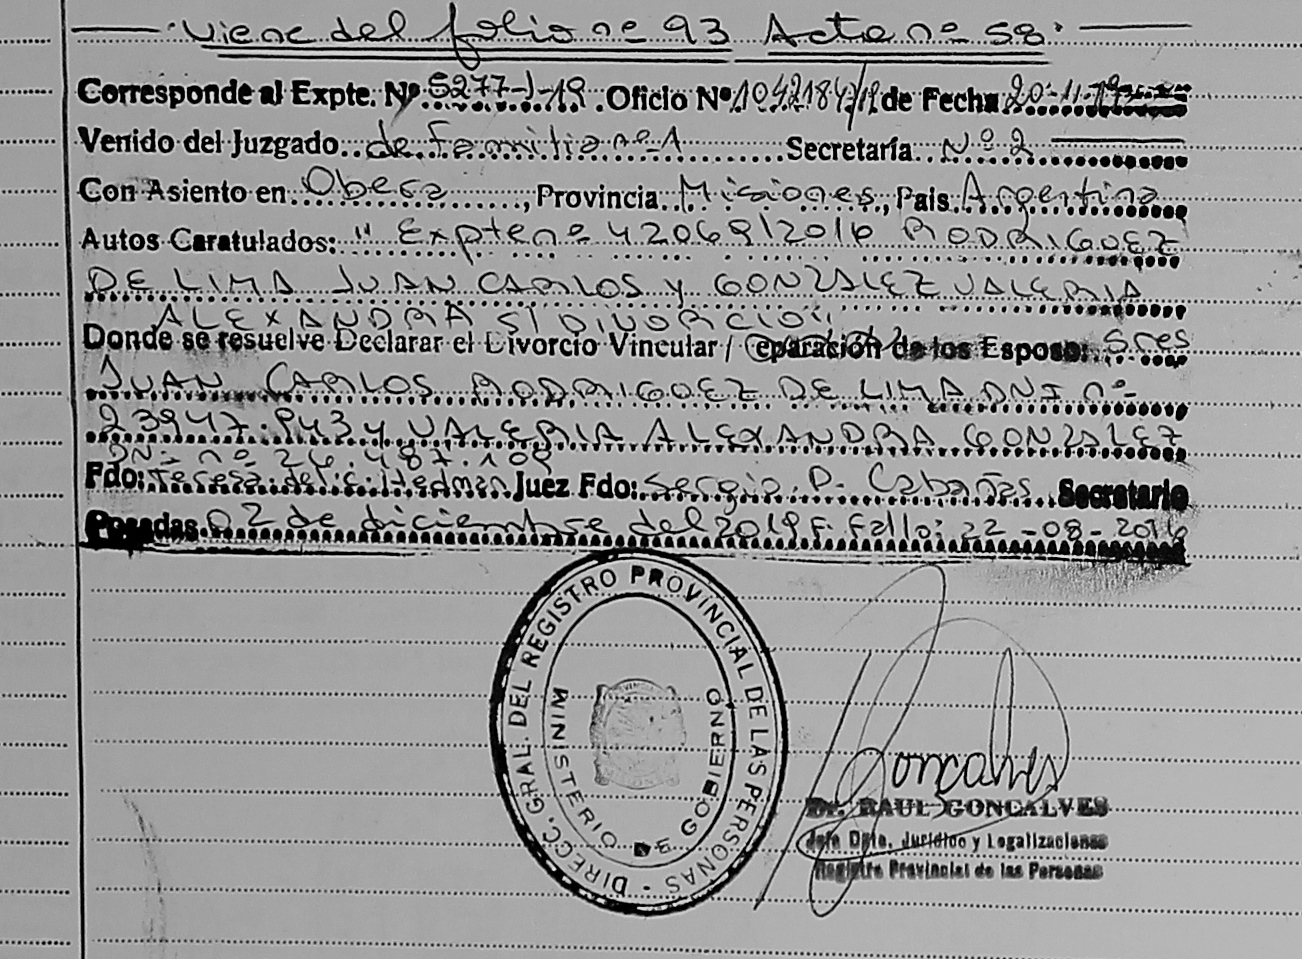 Viene del folio nº 93 Acta nº 58.
Corresponde al Expte. Nº 5277-J-19 .Oficio Nº 1042184/19 de Fecha 20-11-19
Venido del Juzgado de Familia nº 1 Secretaría Nº 2
Con Asiento en Obera, Provincia Misiones, Pais Argentina
Autos Caratulados: "Expte nº 42069/2016 RODRIGUEZ
DE LIMA JUAN CARLOS y GONZALEZ VALERIA
ALEXANDRA S/ DIVORCIO"
Donde se resuelve Declarar el Divorcio Vincular / eparación de los Esposo: Sres
JUAN CARLOS RODRIGUEZ DE LIMA DNI nº
23947.943 y VALERIA ALEXANDRA GONZALEZ
DNI nº 26.487.109
Fdo: Teresa del C. Hedman Juez Fdo: Sergio D. Cabañas Secretario
Posadas 02 de diciembre del 2019 F. Fallo: 22-08-2016
DIRECC. GRAL. DEL REGISTRO PROVINCIAL DE LAS PERSONAS -
MINISTERIO DE GOBIERNO
Goncalves
Dr. RAUL GONCALVES
Jefe Dpto. Jurídico y Legalizaciones
Registro Provincial de las Personas